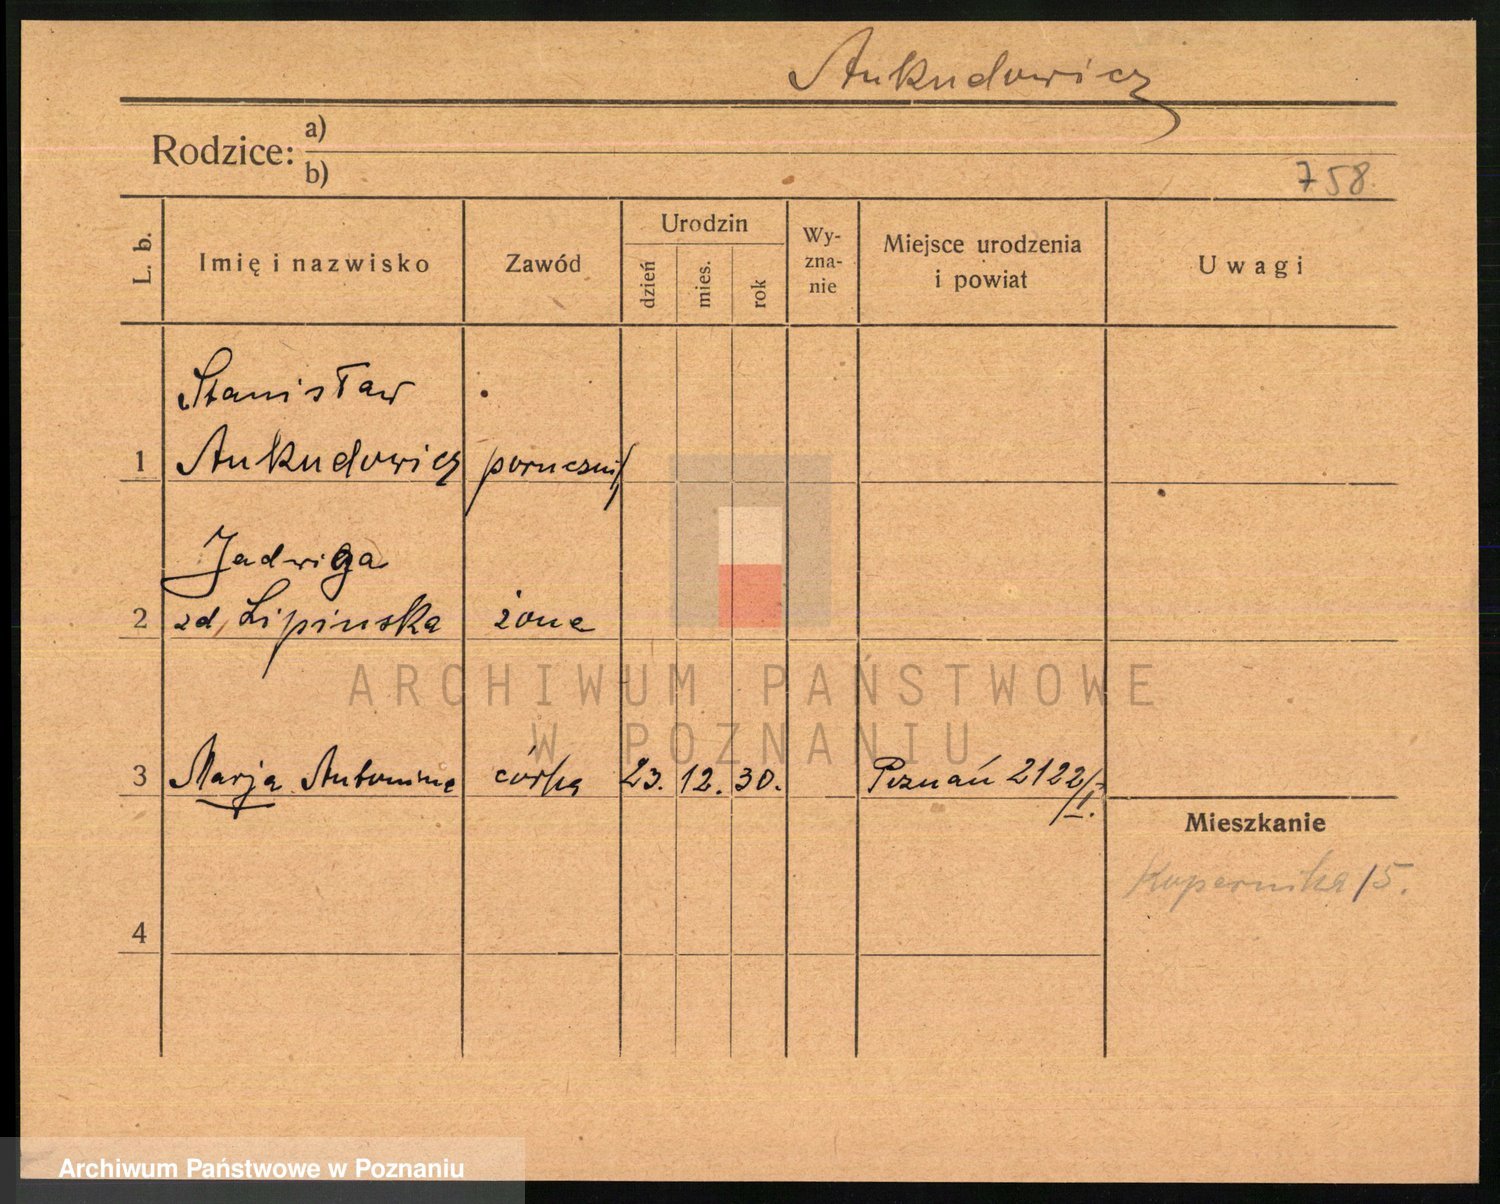 Ankudowicz
Rodzice: a)
b)
758.
L. b.
Imię i nazwisko
Zawód
Urodzin
dzień
mies.
rok
Wy-
zna-
nie
Miejsce urodzenia
i powiat
Uwagi
Stanisław
1 Ankudowicz porucznik
Jadwiga
2 zd. Lipinska żona
3 Marja Antonina córka 23. 12. 30. Poznań 2122/I.
Mieszkanie
Kopernika 15.
4
ARCHIWUM PAŃSTWOWE
W POZNANIU
Archiwum Państwowe w Poznaniu